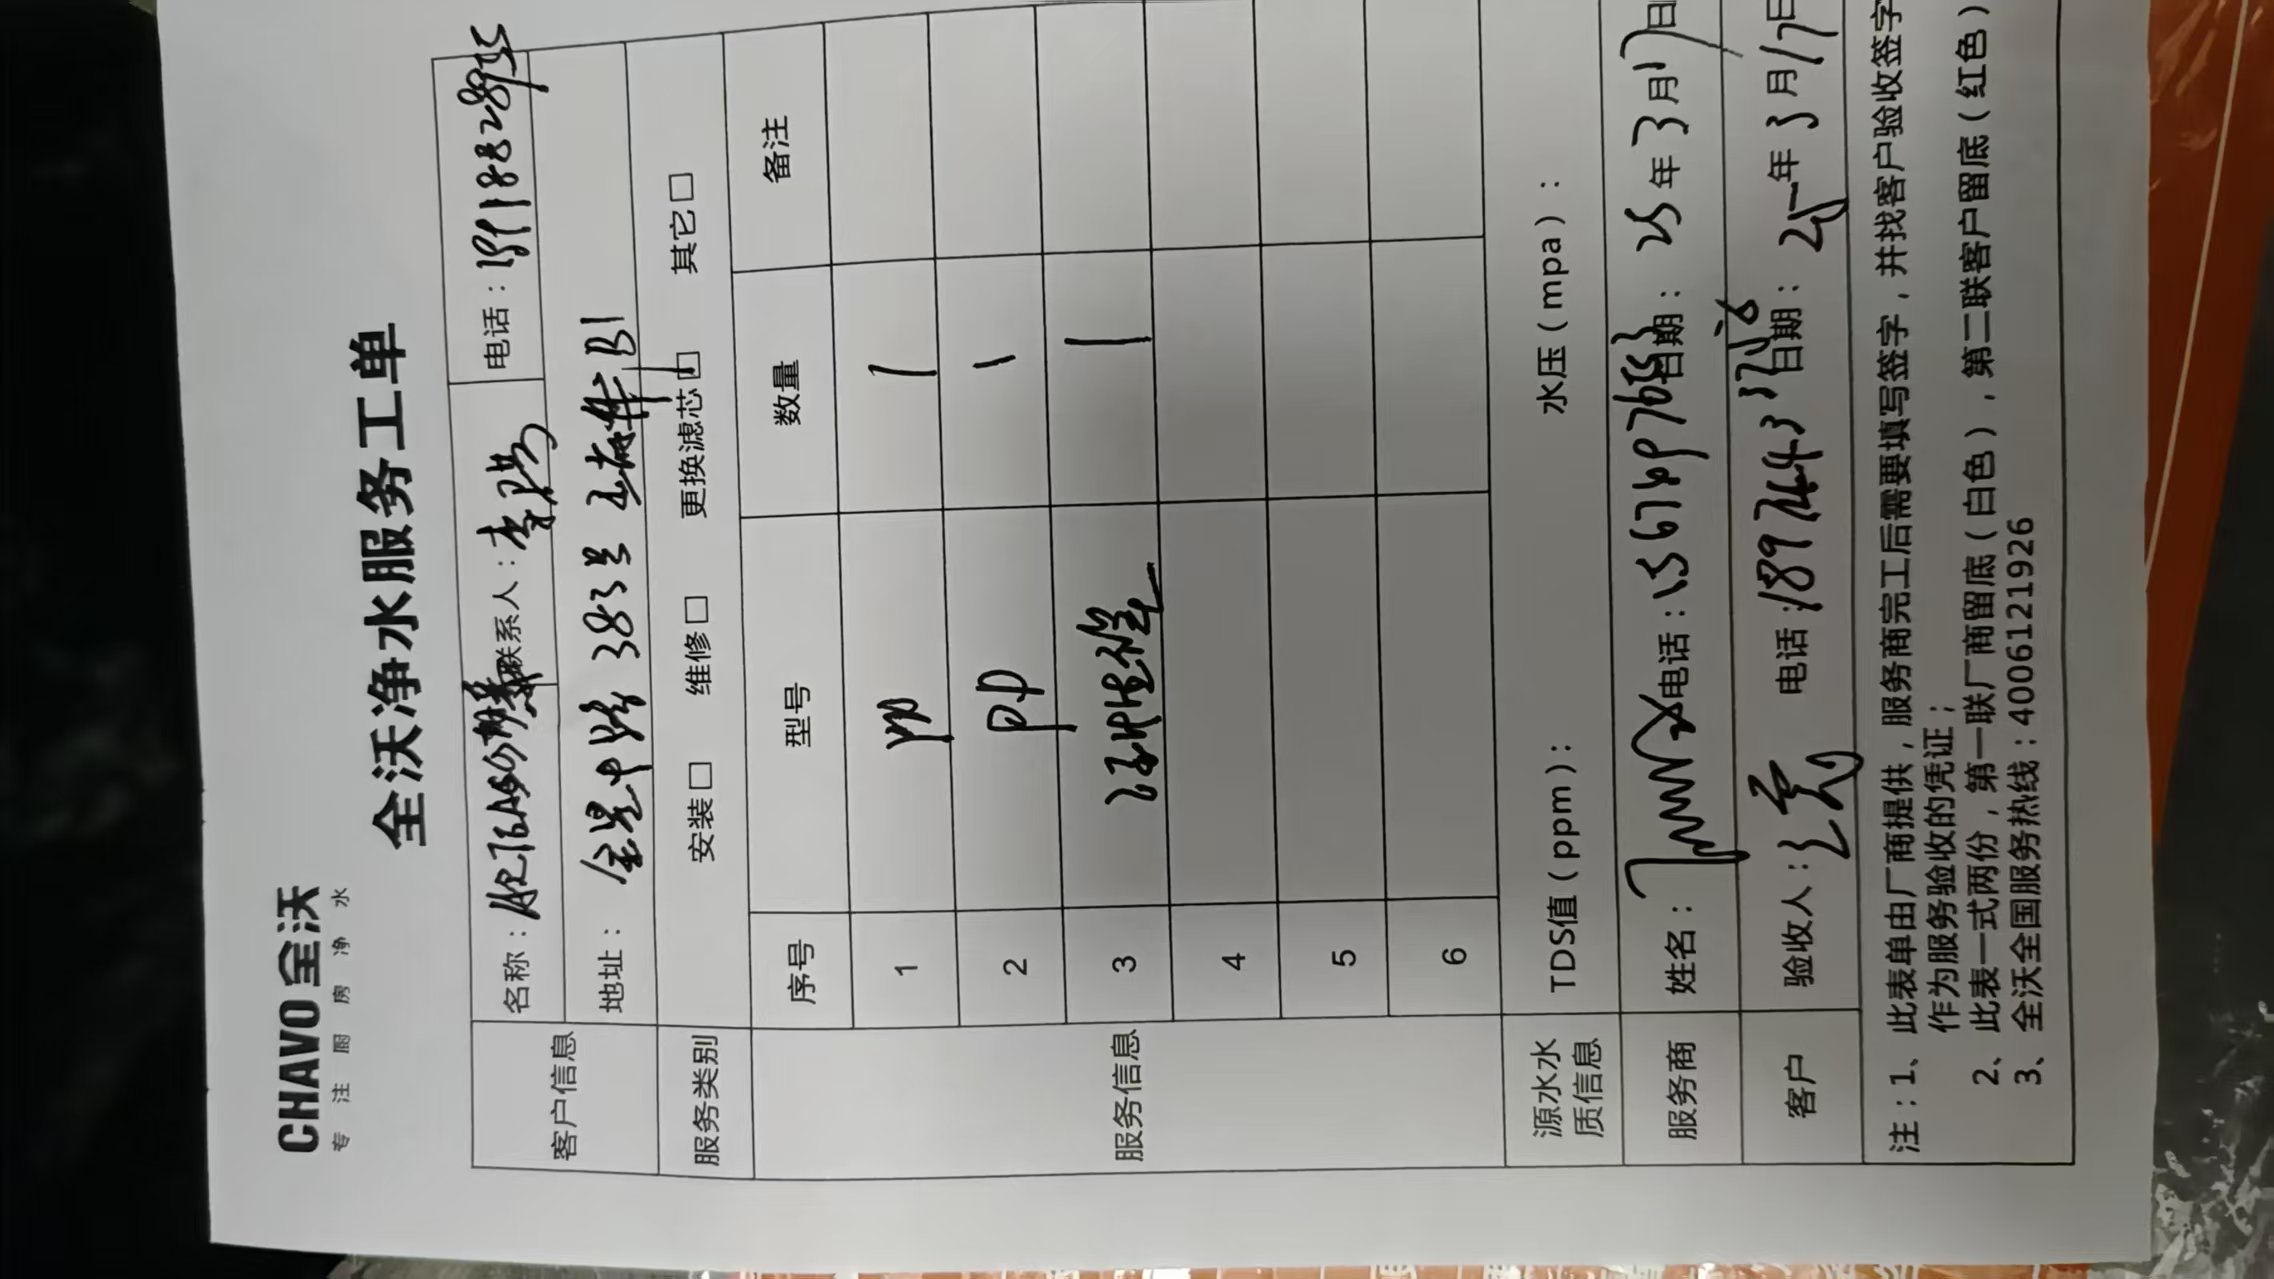 CHAVO 全沃
专注厨房净水
全沃净水服务工单
客户信息 名称： 联系人：李 电话：
地址： 金星中路383号 B1
服务类别 安装□ 维修□ 更换滤芯□ 其它□
服务信息 序号 型号 数量 备注
1 pp 1
2 pp 1
3 1
4
5
6
源水水质信息 TDS值（ppm）： 水压（mpa）：
服务商 姓名： 电话： 日期： 25年3月17日
客户 验收人： 电话： 日期： 25年3月17日
注：1、此表单由厂商提供，服务商完工后需要填写签字，并找客户验收签字
作为服务验收的凭证；
2、此表一式两份，第一联厂商留底（白色），第二联客户留底（红色）
3、全沃全国服务热线：4006121926